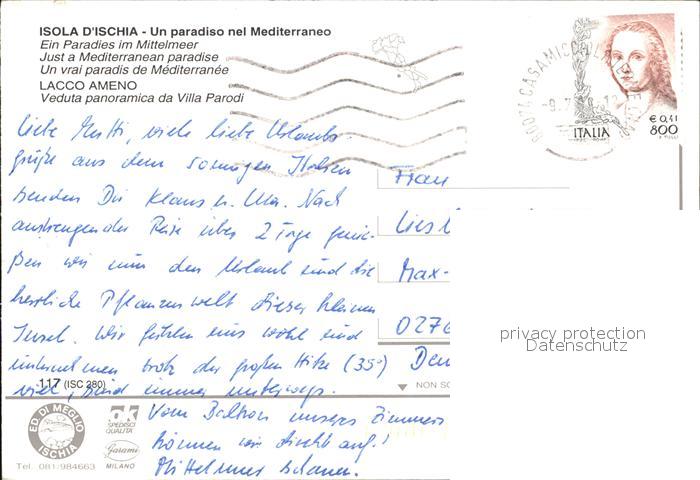 ISOLA D'ISCHIA - Un paradiso nel Mediterraneo
Ein Paradies im Mittelmeer
Just a Mediterranean paradise
Un vrai paradis de Méditerranée
LACCO AMENO
Veduta panoramica da Villa Parodi
ITALIA
€ 0,41
800
Liebe Mutti, viele liebe Urlaubs-
grüße aus dem sonnigen Italien
senden Dir Klaus u. Nach
anstrengender Reise über 2 Tage genie-
ßen wir nun den Urlaub und die
herrliche Pflanzenwelt dieser kleinen
Insel. Wir fühlen uns wohl und
unternehmen trotz der großen Hitze (35°)
viel, sind immer unterwegs.
Vom Balkon unseres Zimmers
können wir direkt auf's
Mittelmeer schauen.
Frau
Max-
0276
117 (ISC 280)
NON SC
ED. DI MEGLIO
ISCHIA
Tel. 081/984663
ok
SPEDISCI
QUALITÀ
Garami
MILANO
privacy protection
Datenschutz